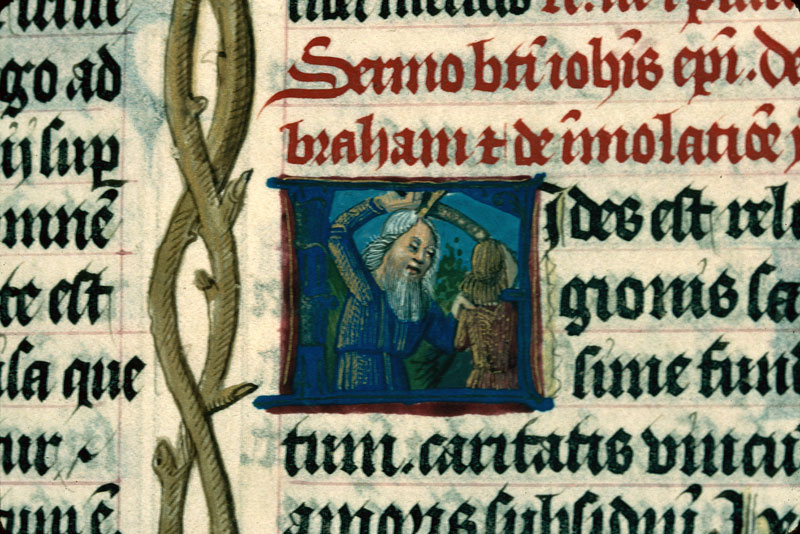 go ad
ij sup
mnē
te est
isa que
tur
Sermo bti iohis epi. de
braham & de imolatiōe
F ides est reli
gionis sa
sime fund
tum. caritatis vincu
amoris subsidiū.